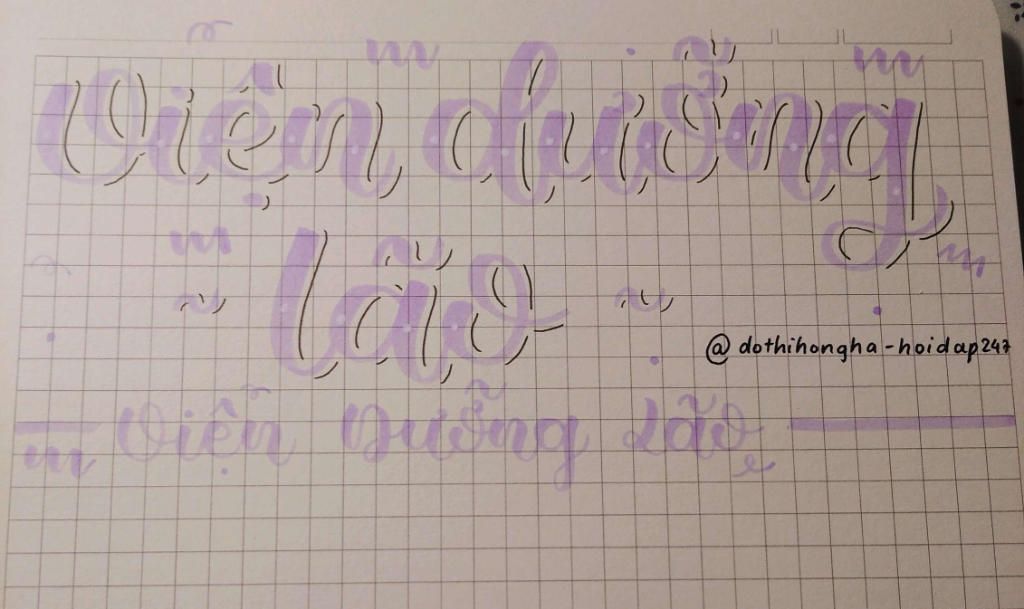 Viện dưỡng
lão
@dothihongha-hoidap247
Viện Dưỡng Lão